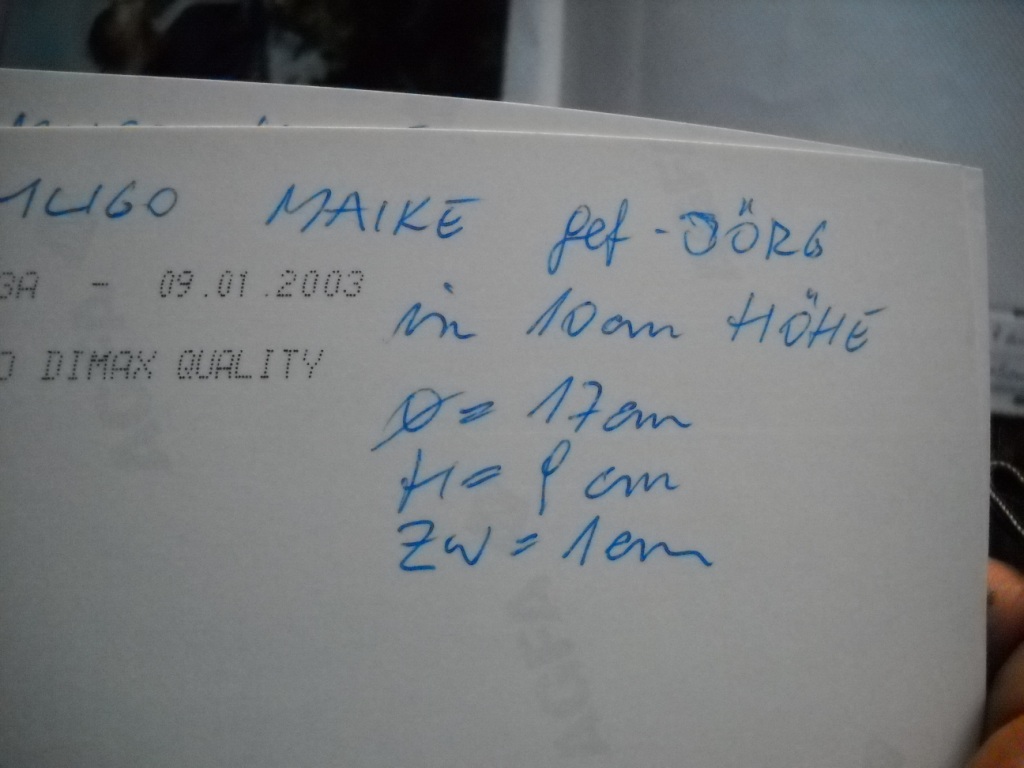 MAIKE gef - JÖRG
- 09.01.2003
in 10cm HÖHE
DIMAX QUALITY
Ø = 17cm
H = 9 cm
ZW = 1cm
AGFA